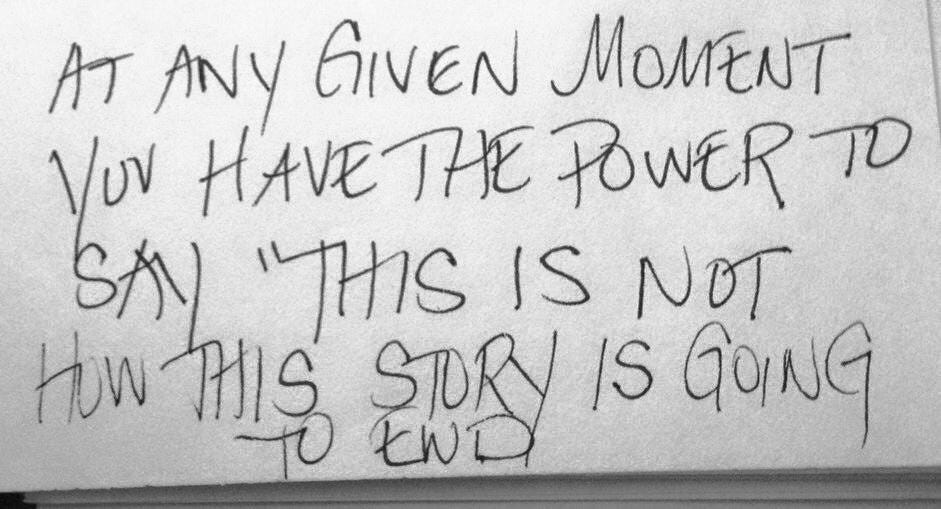 AT ANY GIVEN MOMENT
YOU HAVE THE POWER TO
SAY "THIS IS NOT
HOW THIS STORY IS GOING
TO END